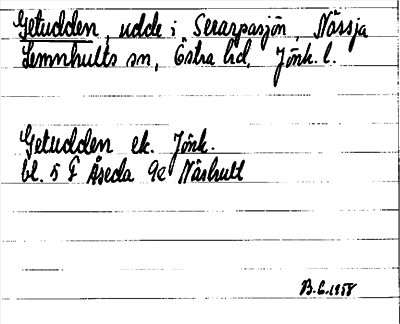 Getudden, udde i Serarpasjön, Nässja
Lemnhults sn, Östra hd, Jönk. l.
Getudden ek. Jönk.
bl. 5 F Åseda 9c Näshult
B.E.1958